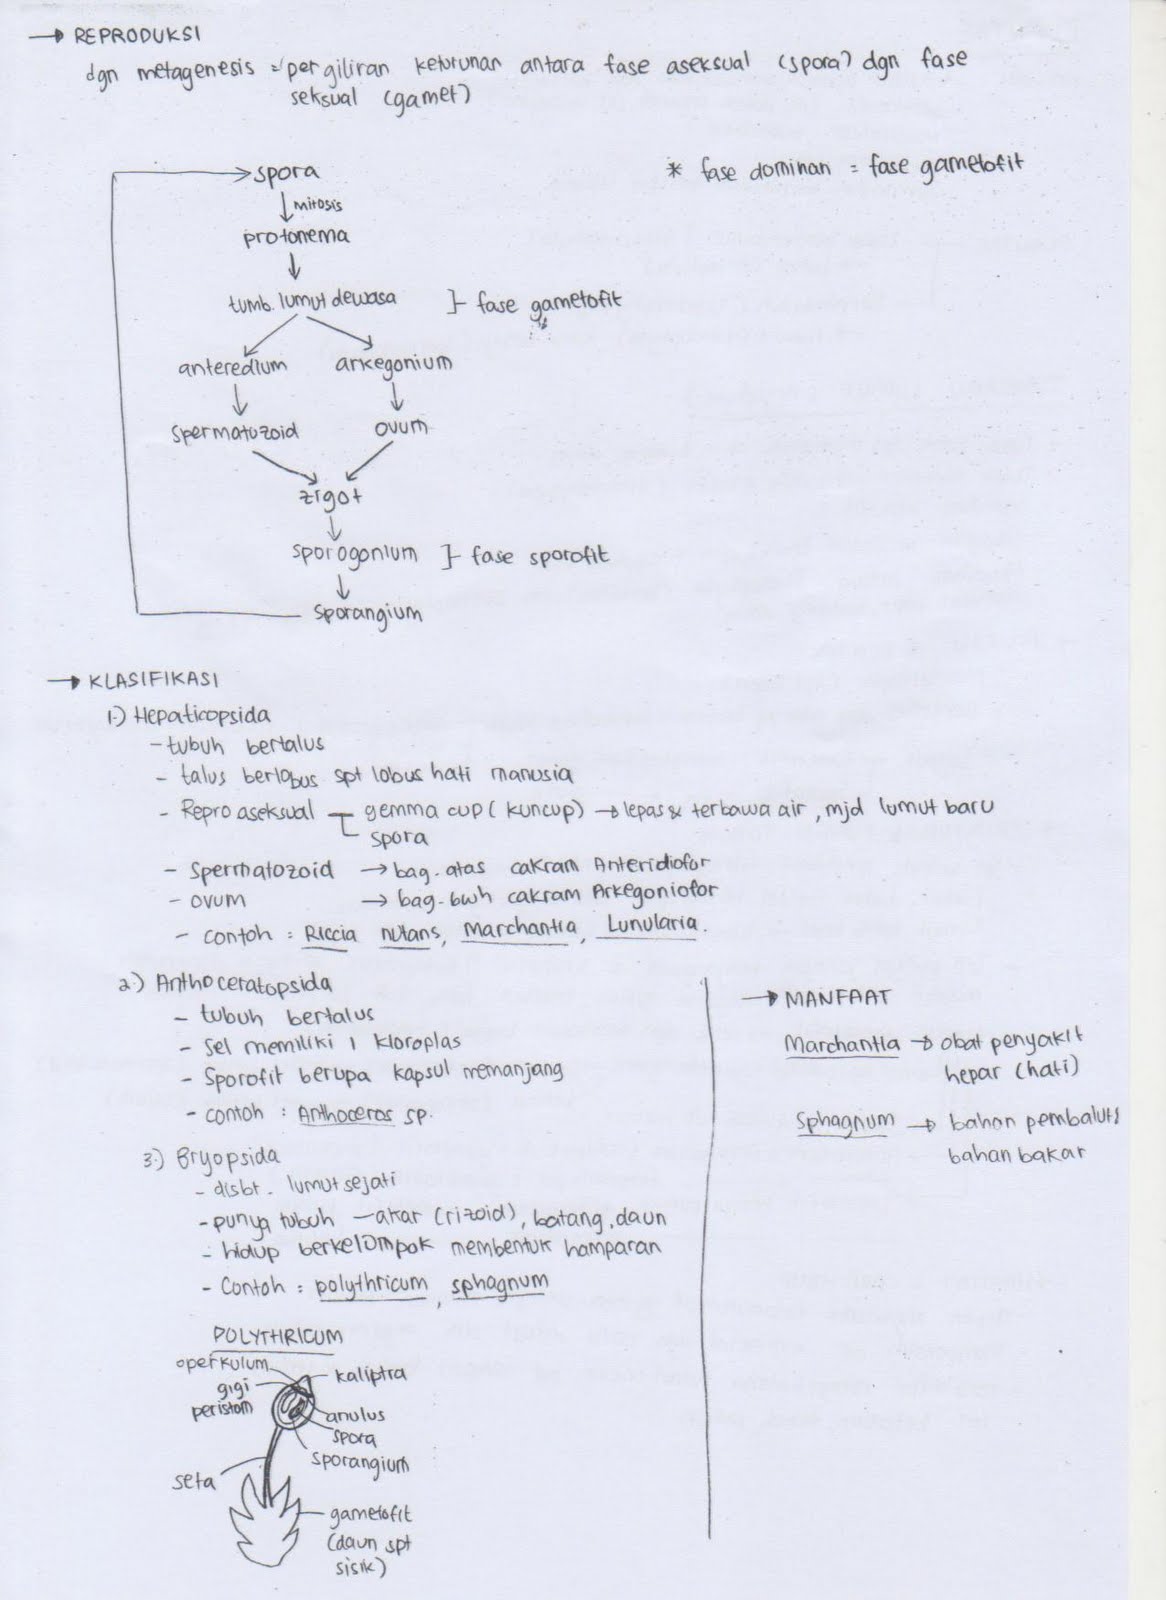 → REPRODUKSI
dgn metagenesis = pergiliran keturunan antara fase aseksual (spora) dgn fase
seksual (gamet)
* fase dominan = fase gametofit
spora
↓ mitosis
protonema
↓
tumb. lumut dewasa } fase gametofit
anteredium arkegonium
spermatozoid ovum
zigot
↓
sporogonium } fase sporofit
↓
sporangium
→ KLASIFIKASI
1.) Hepaticopsida
- tubuh bertalus
- talus berlobus spt lobus hati manusia
- Repro aseksual gemma cup (kuncup) → lepas & terbawa air, mjd lumut baru
spora
- spermatozoid → bag. atas cakram Anteridiofor
- ovum → bag. bwh cakram Arkegoniofor
- contoh : Riccia nutans, Marchantia, Lunularia.
2.) Anthoceratopsida
- tubuh bertalus
- sel memiliki 1 kloroplas
- Sporofit berupa kapsul memanjang
- contoh : Anthoceros sp.
3.) Bryopsida
- disbt. lumut sejati
- punya tubuh — akar (rizoid), batang, daun
- hidup berkelompok membentuk hamparan
- Contoh : polythricum, sphagnum
→ MANFAAT
Marchantia → obat penyakit
hepar (hati)
Sphagnum → bahan pembalut,
bahan bakar
POLYTHRICUM
operkulum
kaliptra
gigi
peristom
anulus
spora
sporangium
seta
gametofit
(daun spt
sisik)